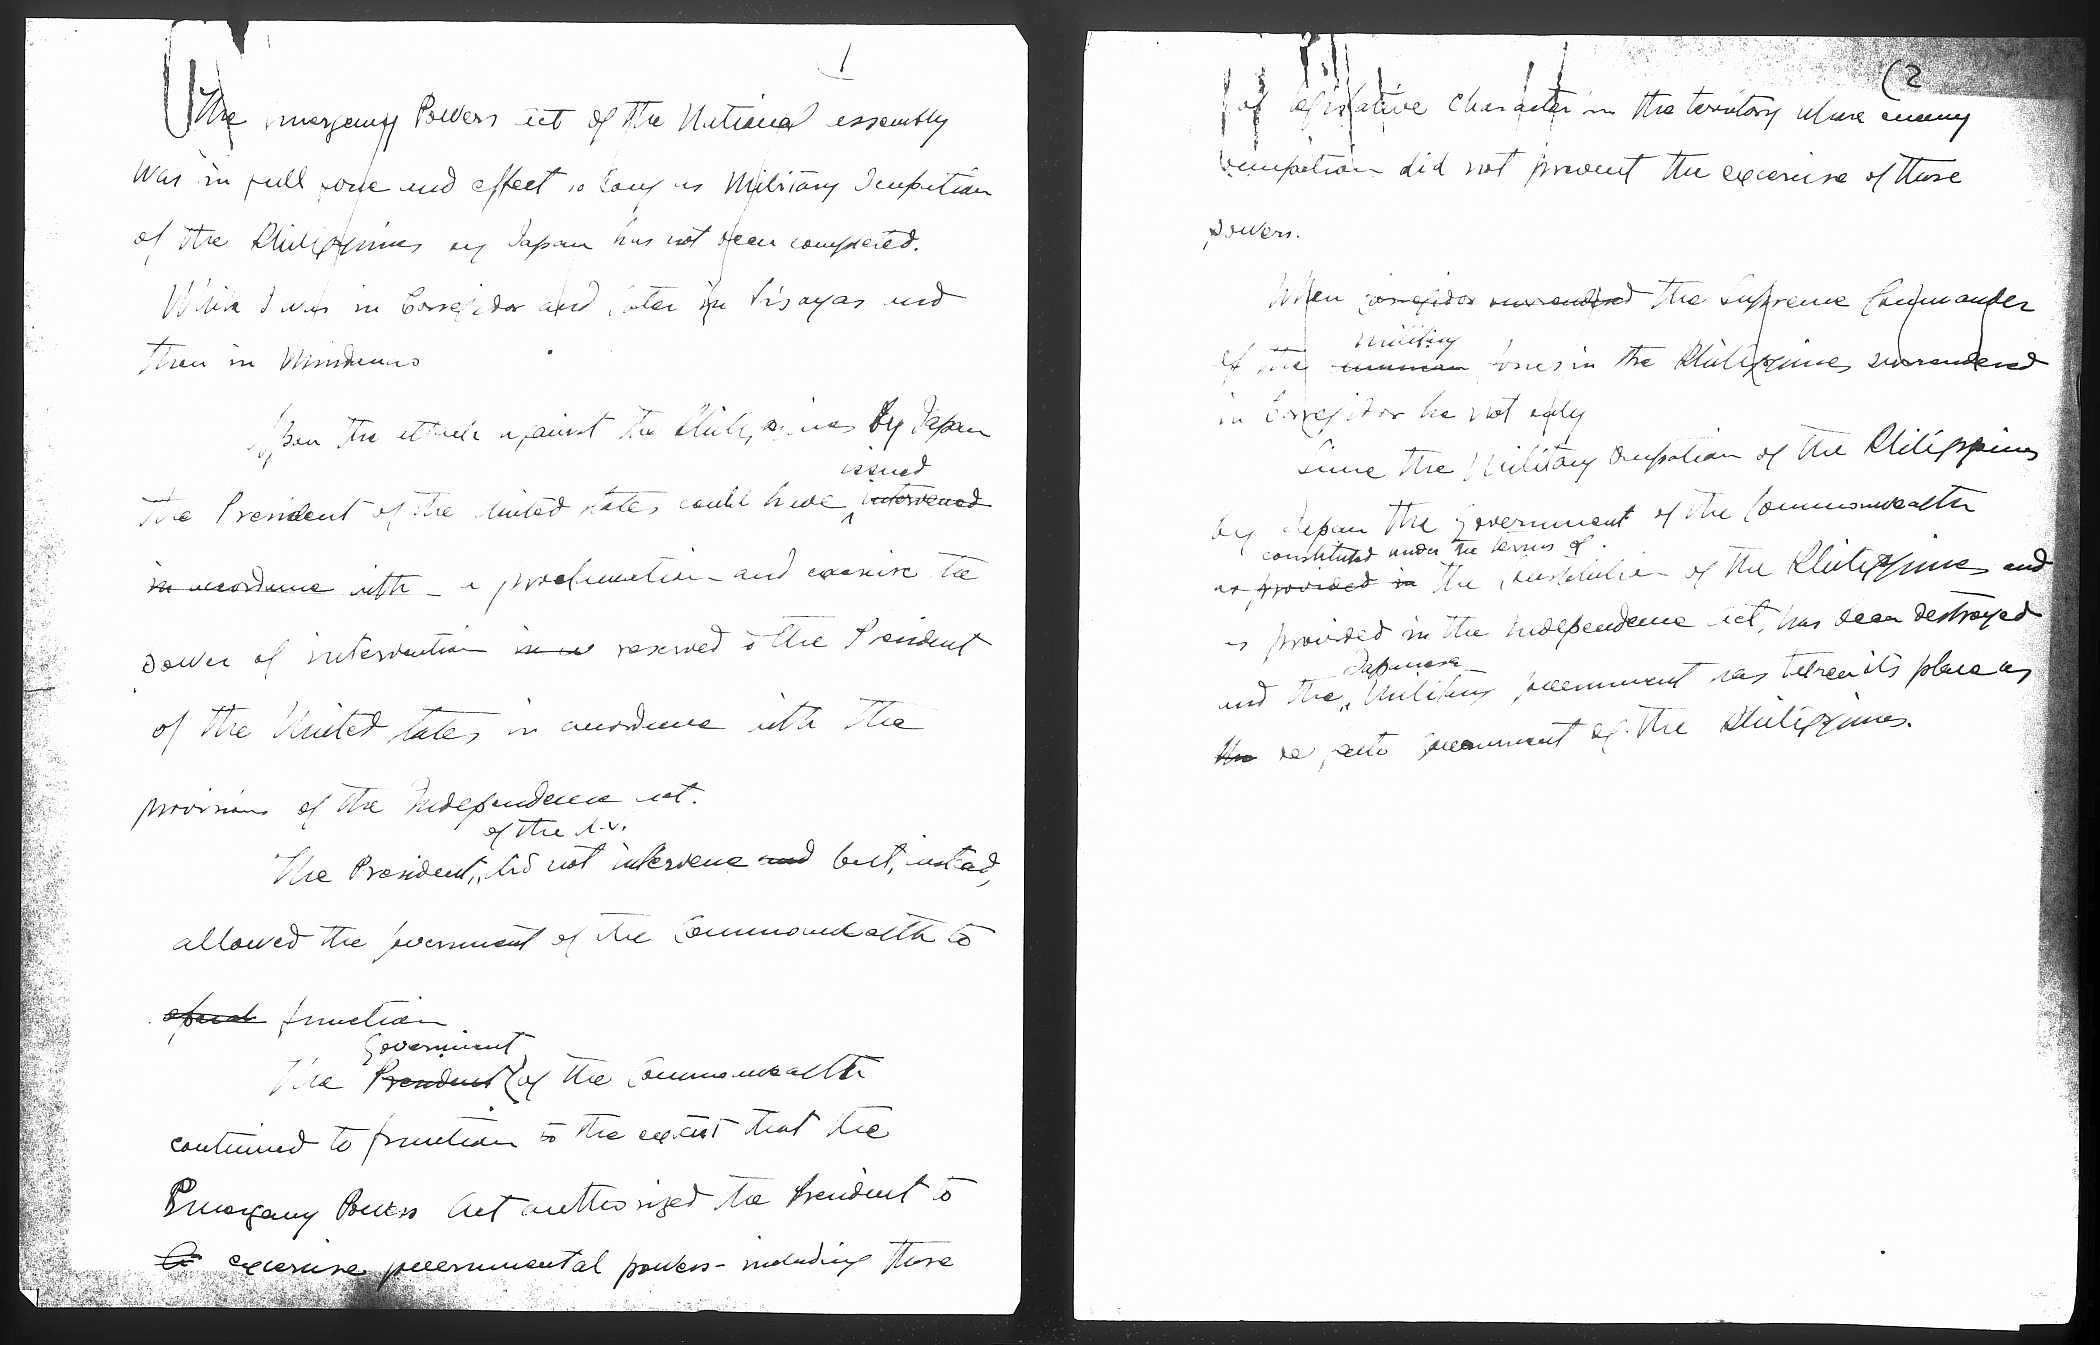 1
The Emergency Powers act of the National assembly
was in full force and effect so long as Military Occupation
of the Philippines by Japan has not been completed.
While I was in Corregidor and later in Visayas and
then in Mindanao
Upon the attack against the Philippines by Japan
issued
the President of the United States could have intervened
in accordance with a proclamation and exercise the
power of intervention reserved to the President
of the United States in accordance with the
provisions of the Independence act.
of the U.S.
The President, did not intervene and but, instead,
allowed the government of the Commonwealth to
function
Government
The President of the Commonwealth
continued to function to the extent that the
Emergency Powers Act authorized the President to
exercise governmental powers - including those
(2
of legislative character in the territory where enemy
occupation did not prevent the exercise of those
powers.
When Corregidor surrendered the Supreme Commander
military
of the forces in the Philippines surrendered
in Corregidor he not only
Since the Military Occupation of the Philippines
by Japan the Government of the Commonwealth
constituted under the terms of
as provided in the Constitution of the Philippines and
as provided in the Independence Act, has been destroyed
Japanese
and the Military government has taken its place as
the de facto government of the Philippines.